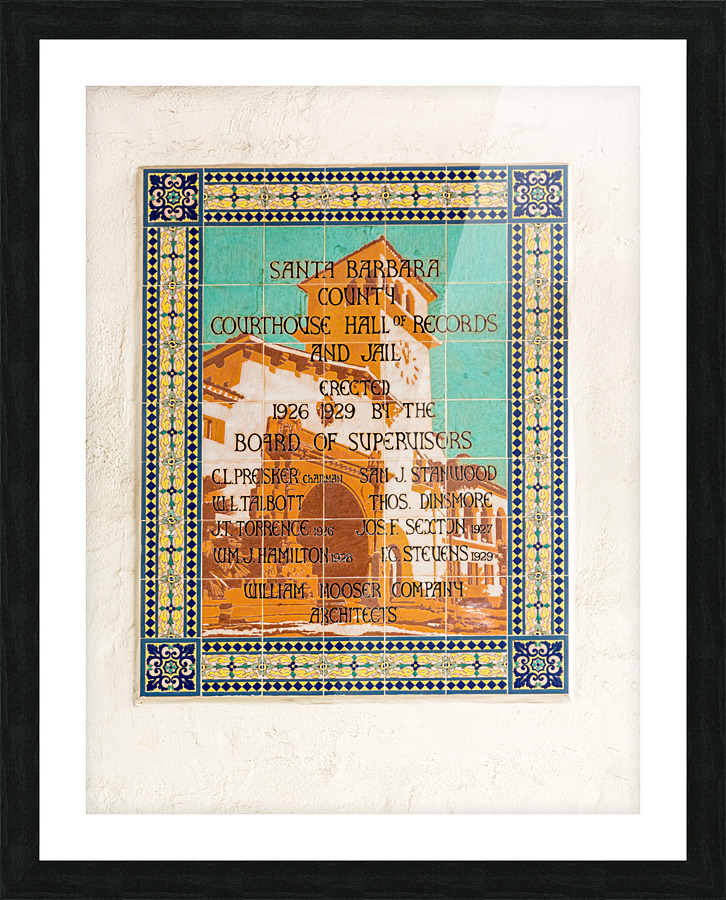 SANTA BARBARA
COUNTY
COURTHOUSE HALL OF RECORDS
AND JAIL
ERECTED
1926 1929 BY THE
BOARD OF SUPERVISORS
C.L. PREISKER Chairman SAM J. STANWOOD
W.L. TALBOTT THOS. DINSMORE
J.T. TORRENCE 1926 JOS. F. SEXTON 1927
WM. J. HAMILTON 1928 I.C. STEVENS 1929
WILLIAM MOOSER COMPANY
ARCHITECTS